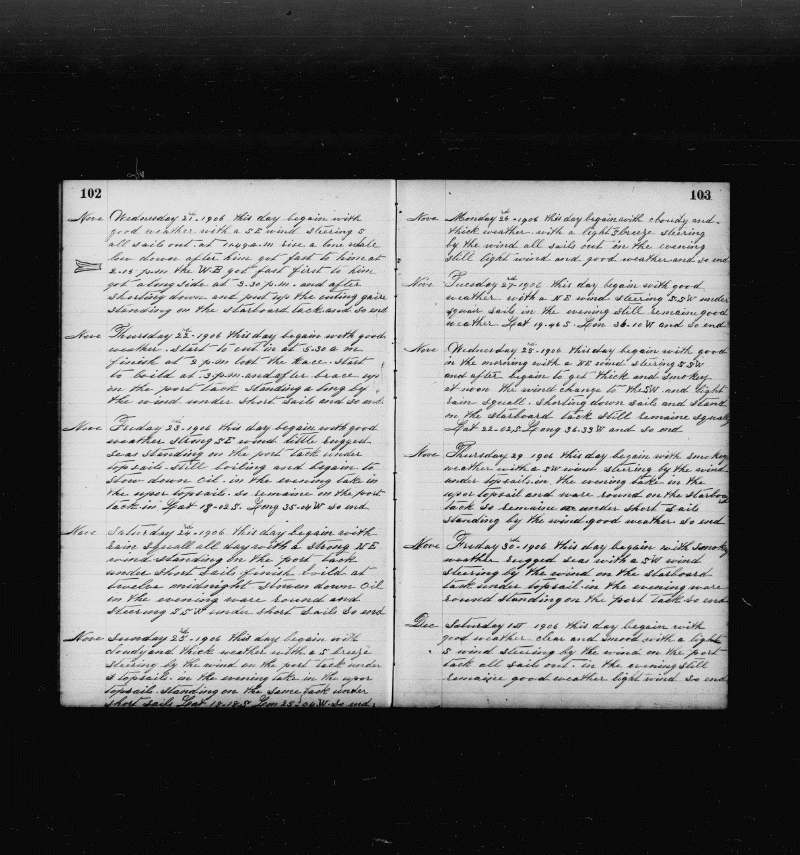 102
Nove Wednesday 21st 1906 this day begain with
good weather with a SE wind steering S
all sails out at 11.49 a.m rise a lone whale
low down after him got fast to him at
2-15 p.m the W.B got fast first to him
got along side at 3-30 p.m. and after
shorting down and put up the cuting gaire
standing on the starboard tack and so end
Nove Thursday 22nd 1906 this day begain with good
weather start to cut in at 5-30 a m
finish at 2 p.m. lost the Race. start
to boild at 3 p.m. and after brace up
in the port tack standing a long by
the wind under short sails and so end
Nove Friday 23rd 1906 this day begain with good
weather strong SE wind little rugged
seas standing on the port tack under
topsails still boiling and begain to
stow down oil in the evening take in
the upor topsails. so remaine on the port
tack in Lat 18-02 S. Long 35-04 W so end
Nove Saturday 24th 1906 this day begain with
rain squall all day with a strong NE
wind standing on the port tack
under short sails finish boild at
twelve midnight stowen down Oil
in the evening ware round and
steering S S W under short sails so end
Nove Sunday 25th 1906 this day begain with
cloudy and thick weather with a S breeze
steering by the wind on the port tack under
topsails. in the evening take in the upor
topsails standing on the same tack under
short sails Lat 18-18 S Lon so end
103
Nove Monday 26th 1906 this day begain with cloudy and
thick weather with a light breeze steering
by the wind all sails out in the evening
still light wind and good weather and so end
Nove Tuesday 27th 1906 this day begain with good
weather with a NE wind steering S S W under
squar sails in the evening still remaine good
weather Lat 19-46 S. Lon 36-10 W and so end
Nove Wednesday 28th 1906 this day begain with good
in the morning with a NE wind steering S S W
and after begain to get thick and smokey
at noon the wind change to the SW and light
rain squall. shorting down sails and stand
on the starboard tack still remaine squaly
Lat 22-02 S Long 36-33 W and so end
Nove Thursday 29 1906 this day begain with smokey
weather with a SW wind steering by the wind
under topsails in the evening take in the
upor topsail and ware round on the starboard
tack so remaine under short sails
standing by the wind good weather so end
Nove Friday 30th 1906 this day begain with smokey
weather rugged seas with a SW wind
steering by the wind on the starboard
tack under topsails in the evening ware
round standing on the port tack so end
Dec Saturday 1st 1906 this day begain with
good weather clear and smood with a light
S wind steering by the wind on the port
tack all sails out in the evening still
remaine good weather light wind so end